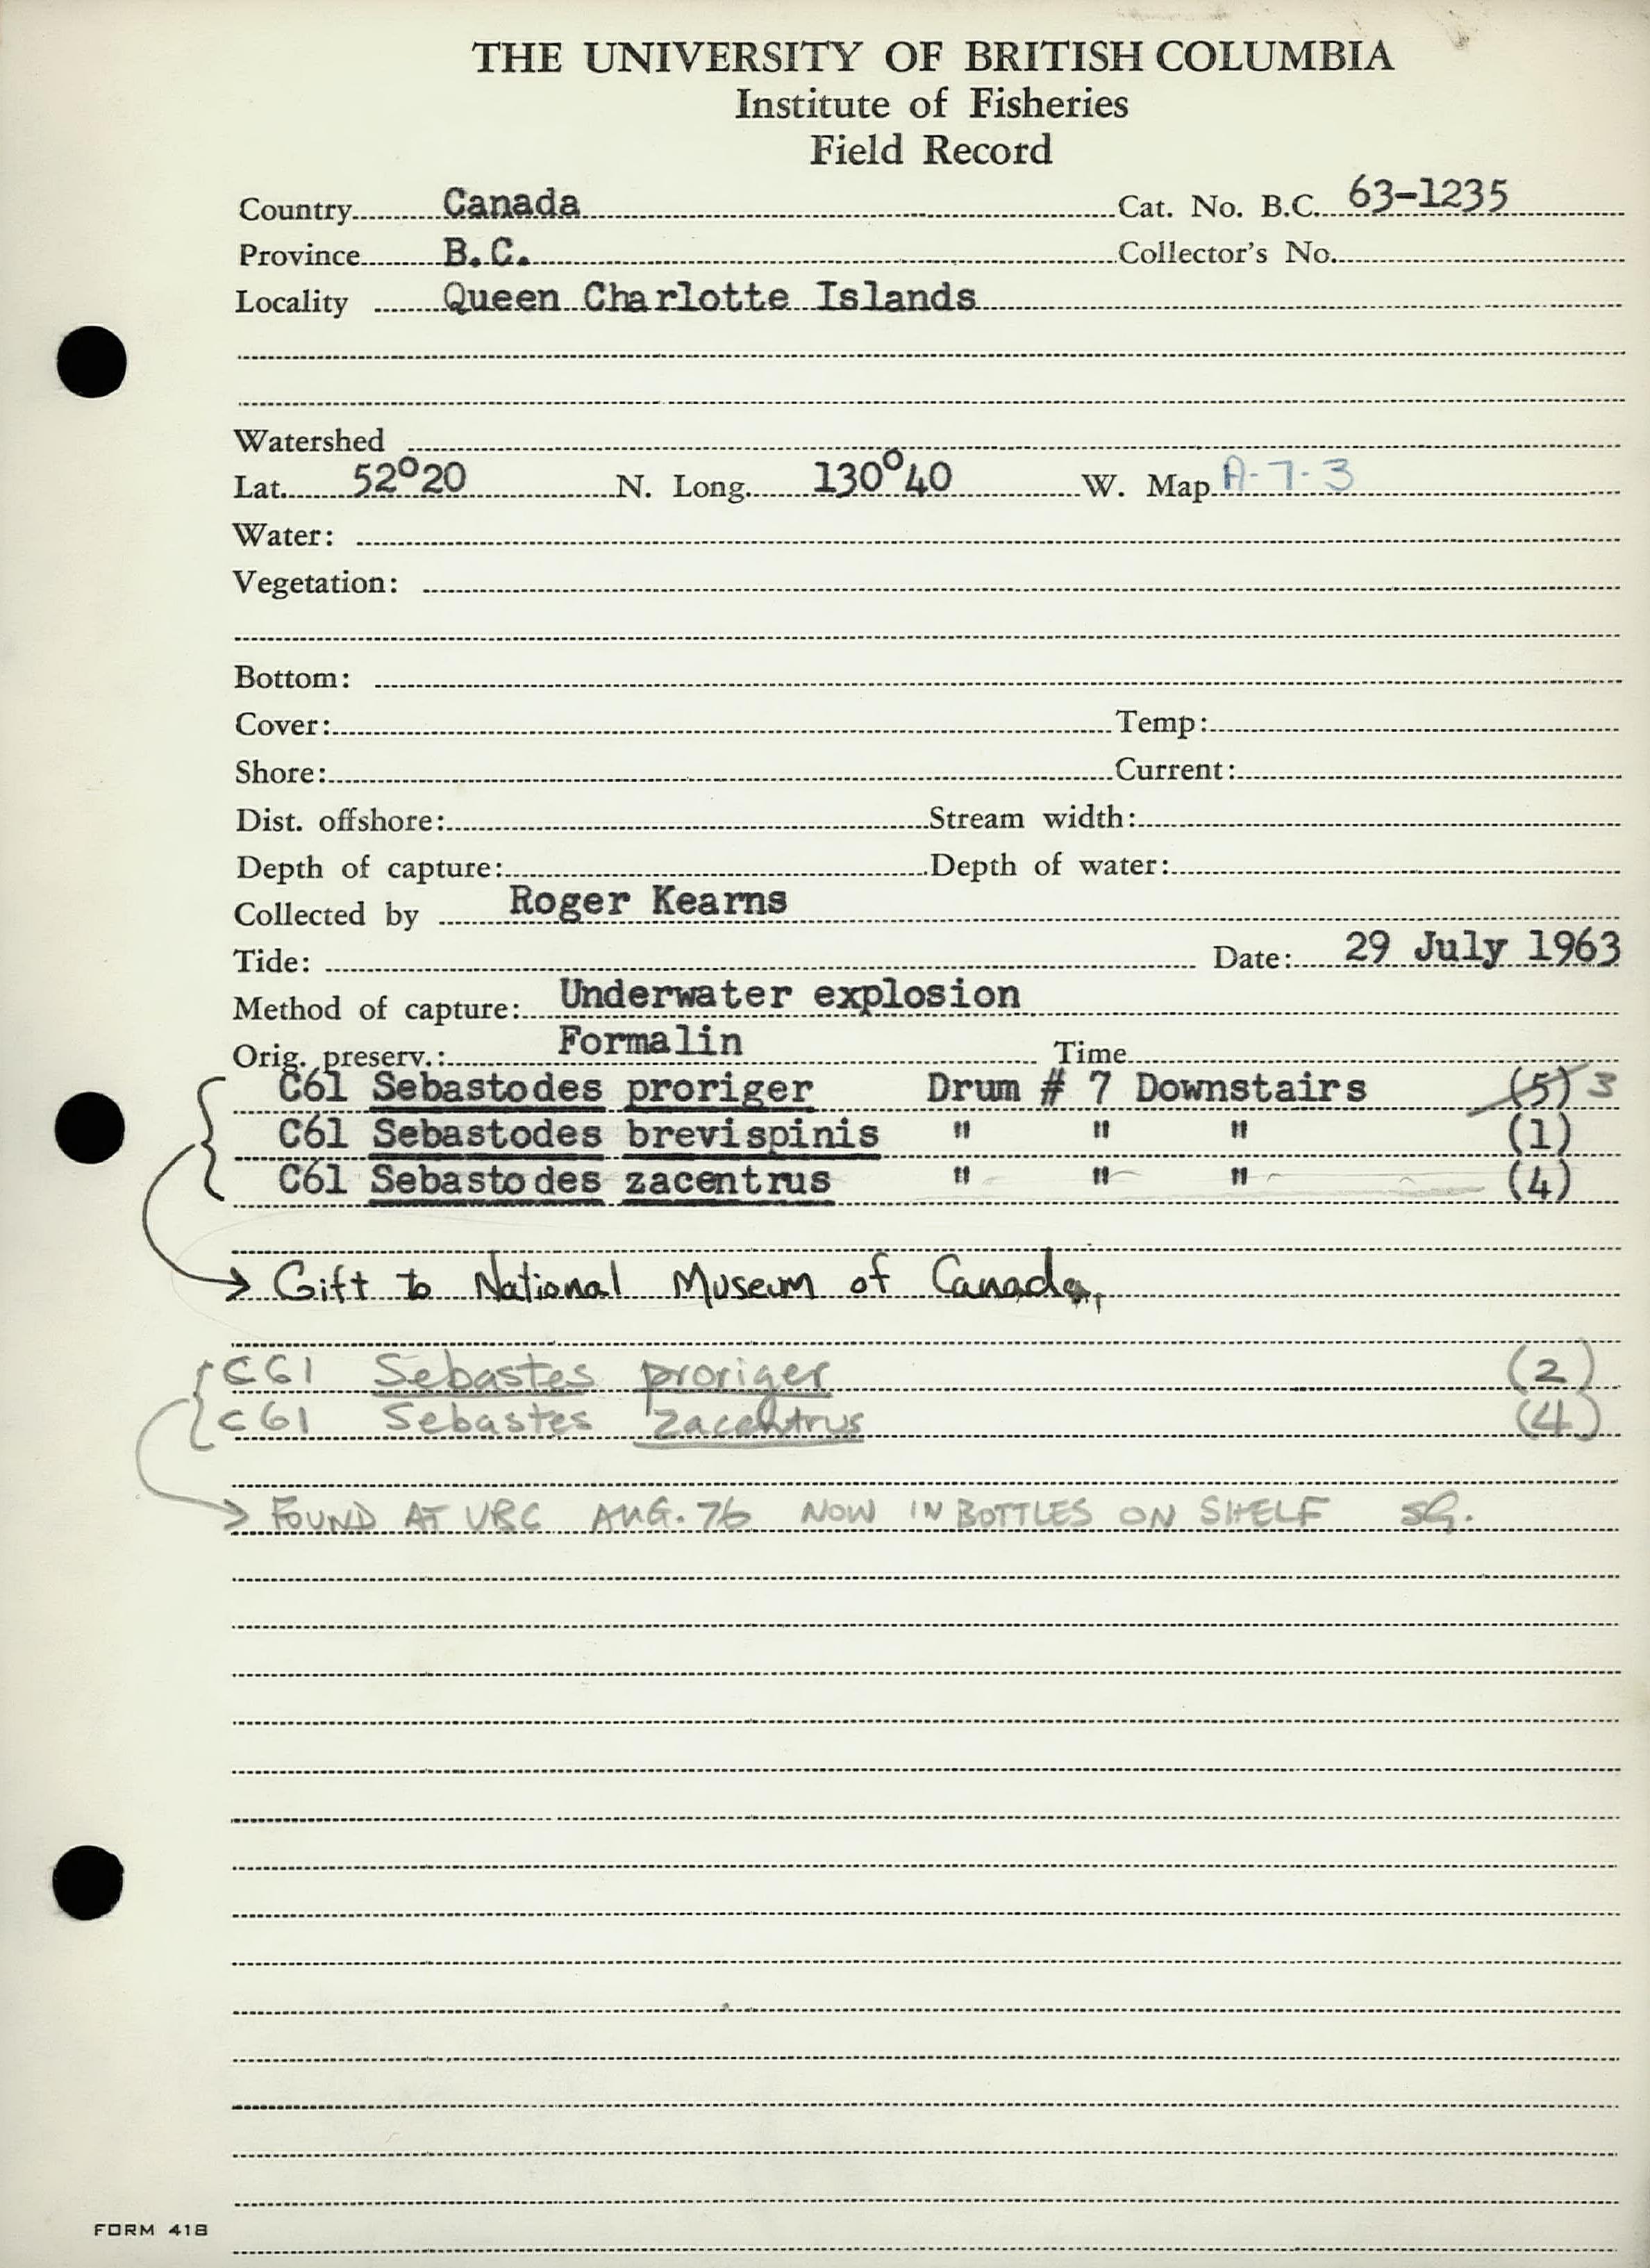 THE UNIVERSITY OF BRITISH COLUMBIA
Institute of Fisheries
Field Record
Country Canada Cat. No. B.C. 63-1235
Province B.C. Collector's No.
Locality Queen Charlotte Islands
Watershed
Lat. 52°20 N. Long. 130°40 W. Map A-7-3
Water:
Vegetation:
Bottom:
Cover: Temp:
Shore: Current:
Dist. offshore: Stream width:
Depth of capture: Depth of water:
Collected by Roger Kearns
Tide: Date: 29 July 1963
Method of capture: Underwater explosion
Orig. preserv.: Formalin Time
C61 Sebastodes proriger Drum # 7 Downstairs (5) 3
C61 Sebastodes brevispinis " " " (1)
C61 Sebastodes zacentrus " " " (4)
→ Gift to National Museum of Canada,
C61 Sebastes proriger (2)
C61 Sebastes zacentrus (4)
→ FOUND AT UBC AUG. 76 NOW IN BOTTLES ON SHELF SG.
FORM 418